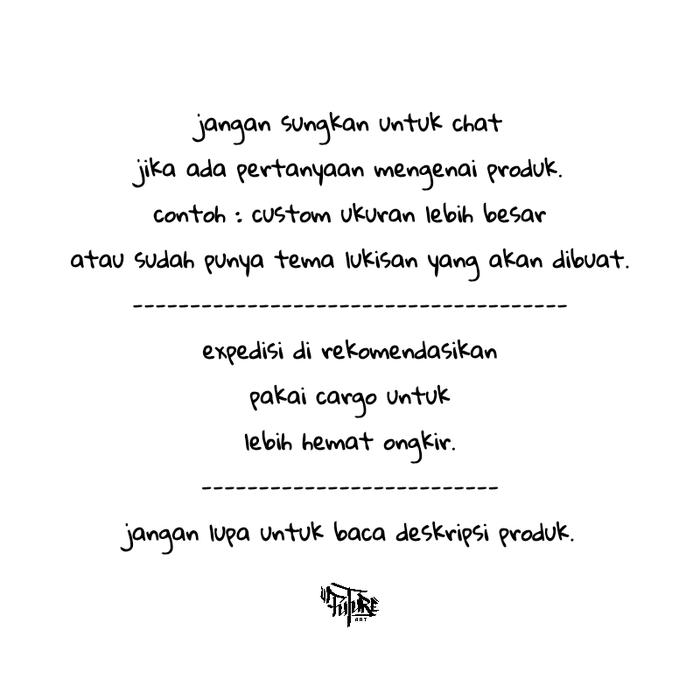 jangan sungkan untuk chat
jika ada pertanyaan mengenai produk.
contoh : custom ukuran lebih besar
atau sudah punya tema lukisan yang akan dibuat.
--------------------------------------
expedisi di rekomendasikan
pakai cargo untuk
lebih hemat ongkir.
--------------------------
jangan lupa untuk baca deskripsi produk.
FUTURE
ART